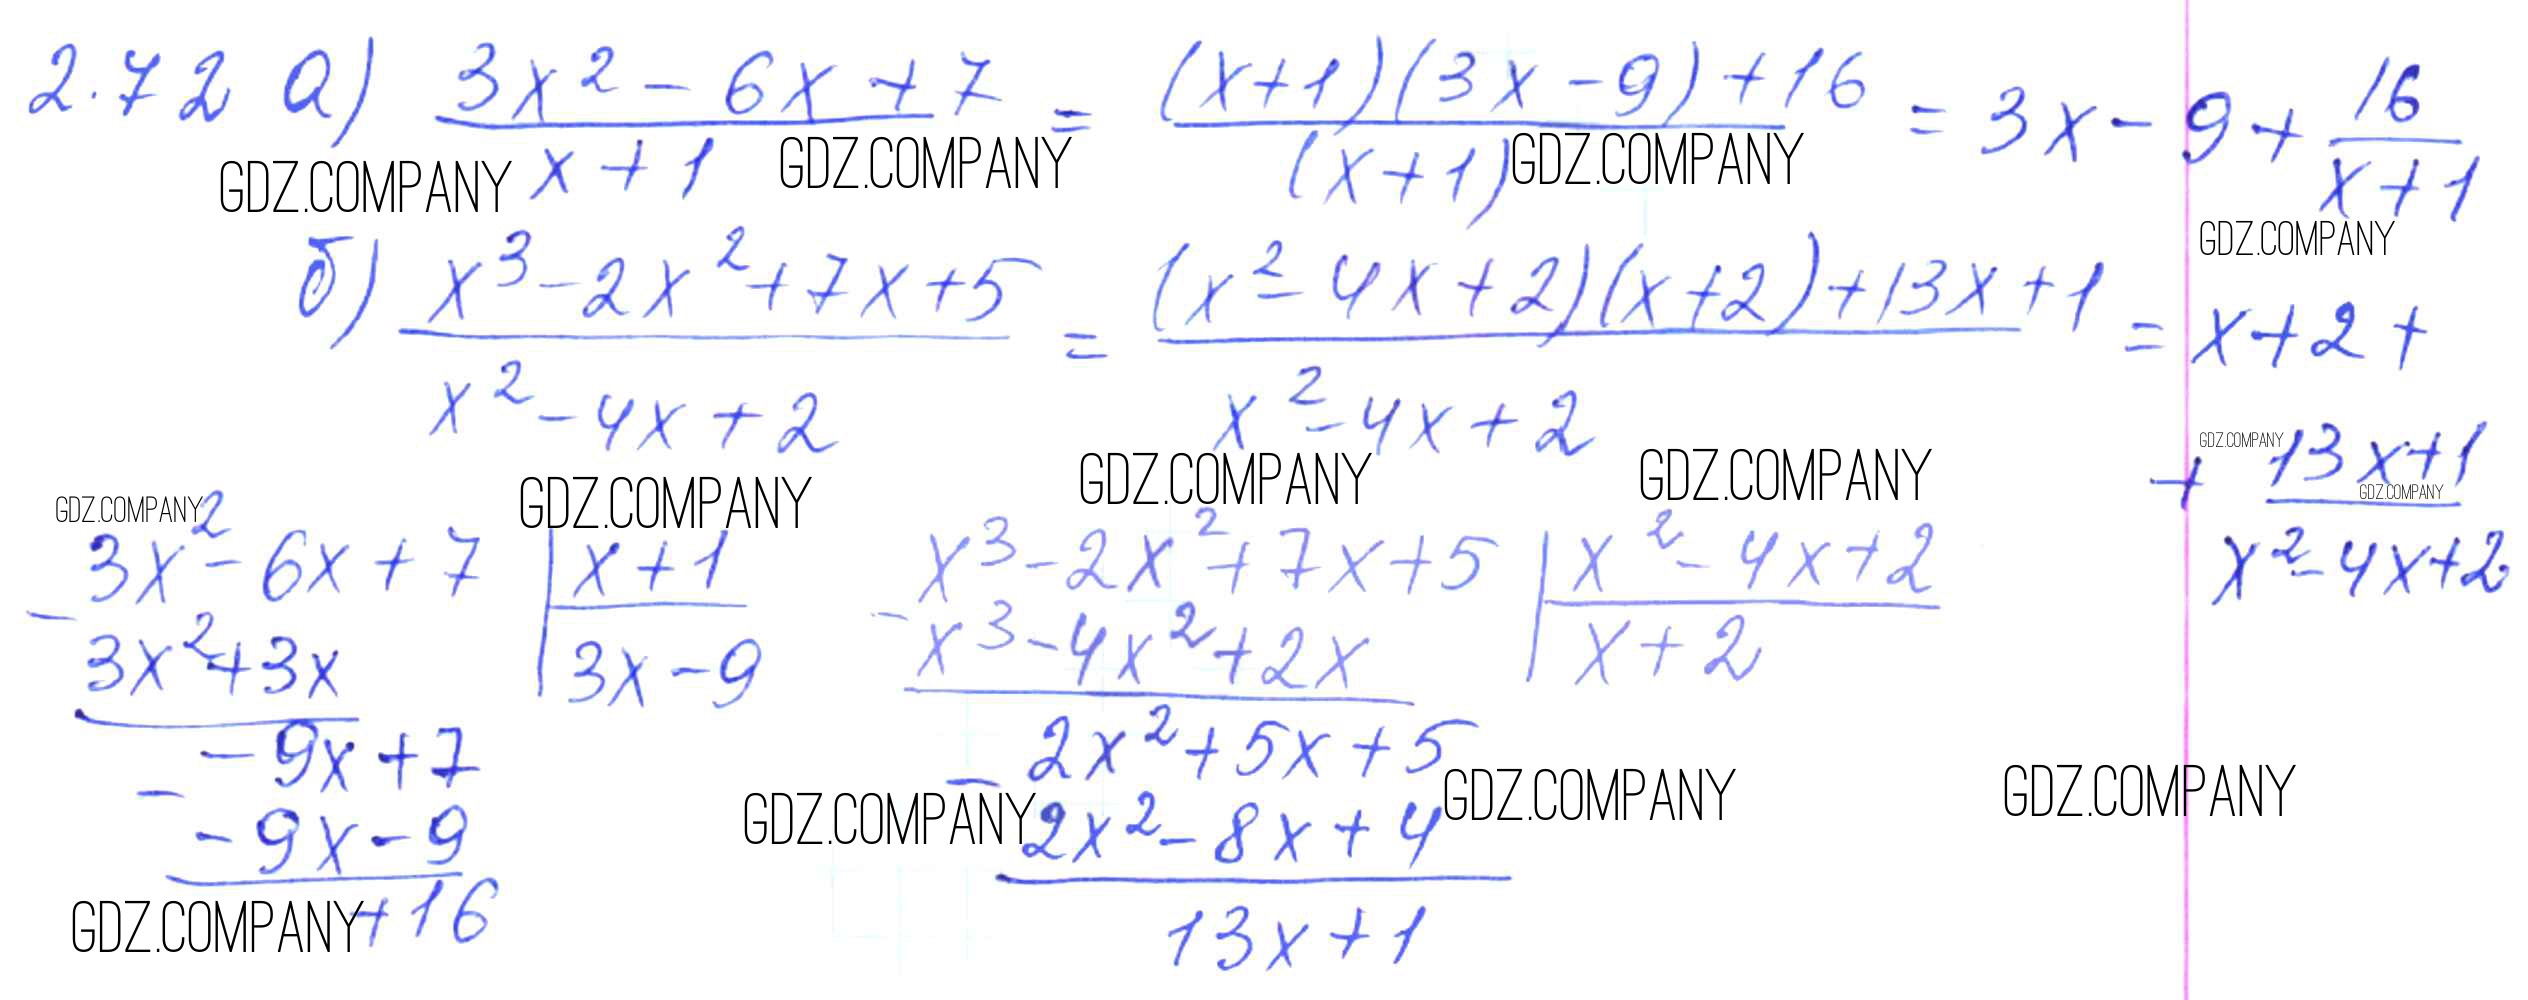 2.72 а) (3x² - 6x + 7)/(x + 1) = ((x+1)(3x - 9) + 16)/((x+1)) = 3x - 9 + 16/(x+1)
GDZ.COMPANY GDZ.COMPANY GDZ.COMPANY
GDZ.COMPANY
б) (x³ - 2x² + 7x + 5)/(x² - 4x + 2) = ((x² - 4x + 2)(x+2) + 13x + 1)/(x² - 4x + 2) = x + 2 +
+ (13x+1)/(x² - 4x + 2)
GDZ.COMPANY GDZ.COMPANY
GDZ.COMPANY GDZ.COMPANY GDZ.COMPANY GDZ.COMPANY
3x² - 6x + 7 | x + 1
- 3x² + 3x | 3x - 9
-9x + 7
- -9x - 9
+16
x³ - 2x² + 7x + 5 | x² - 4x + 2
- x³ - 4x² + 2x | x + 2
2x² + 5x + 5
- 2x² - 8x + 4
13x + 1
GDZ.COMPANY GDZ.COMPANY GDZ.COMPANY
GDZ.COMPANY